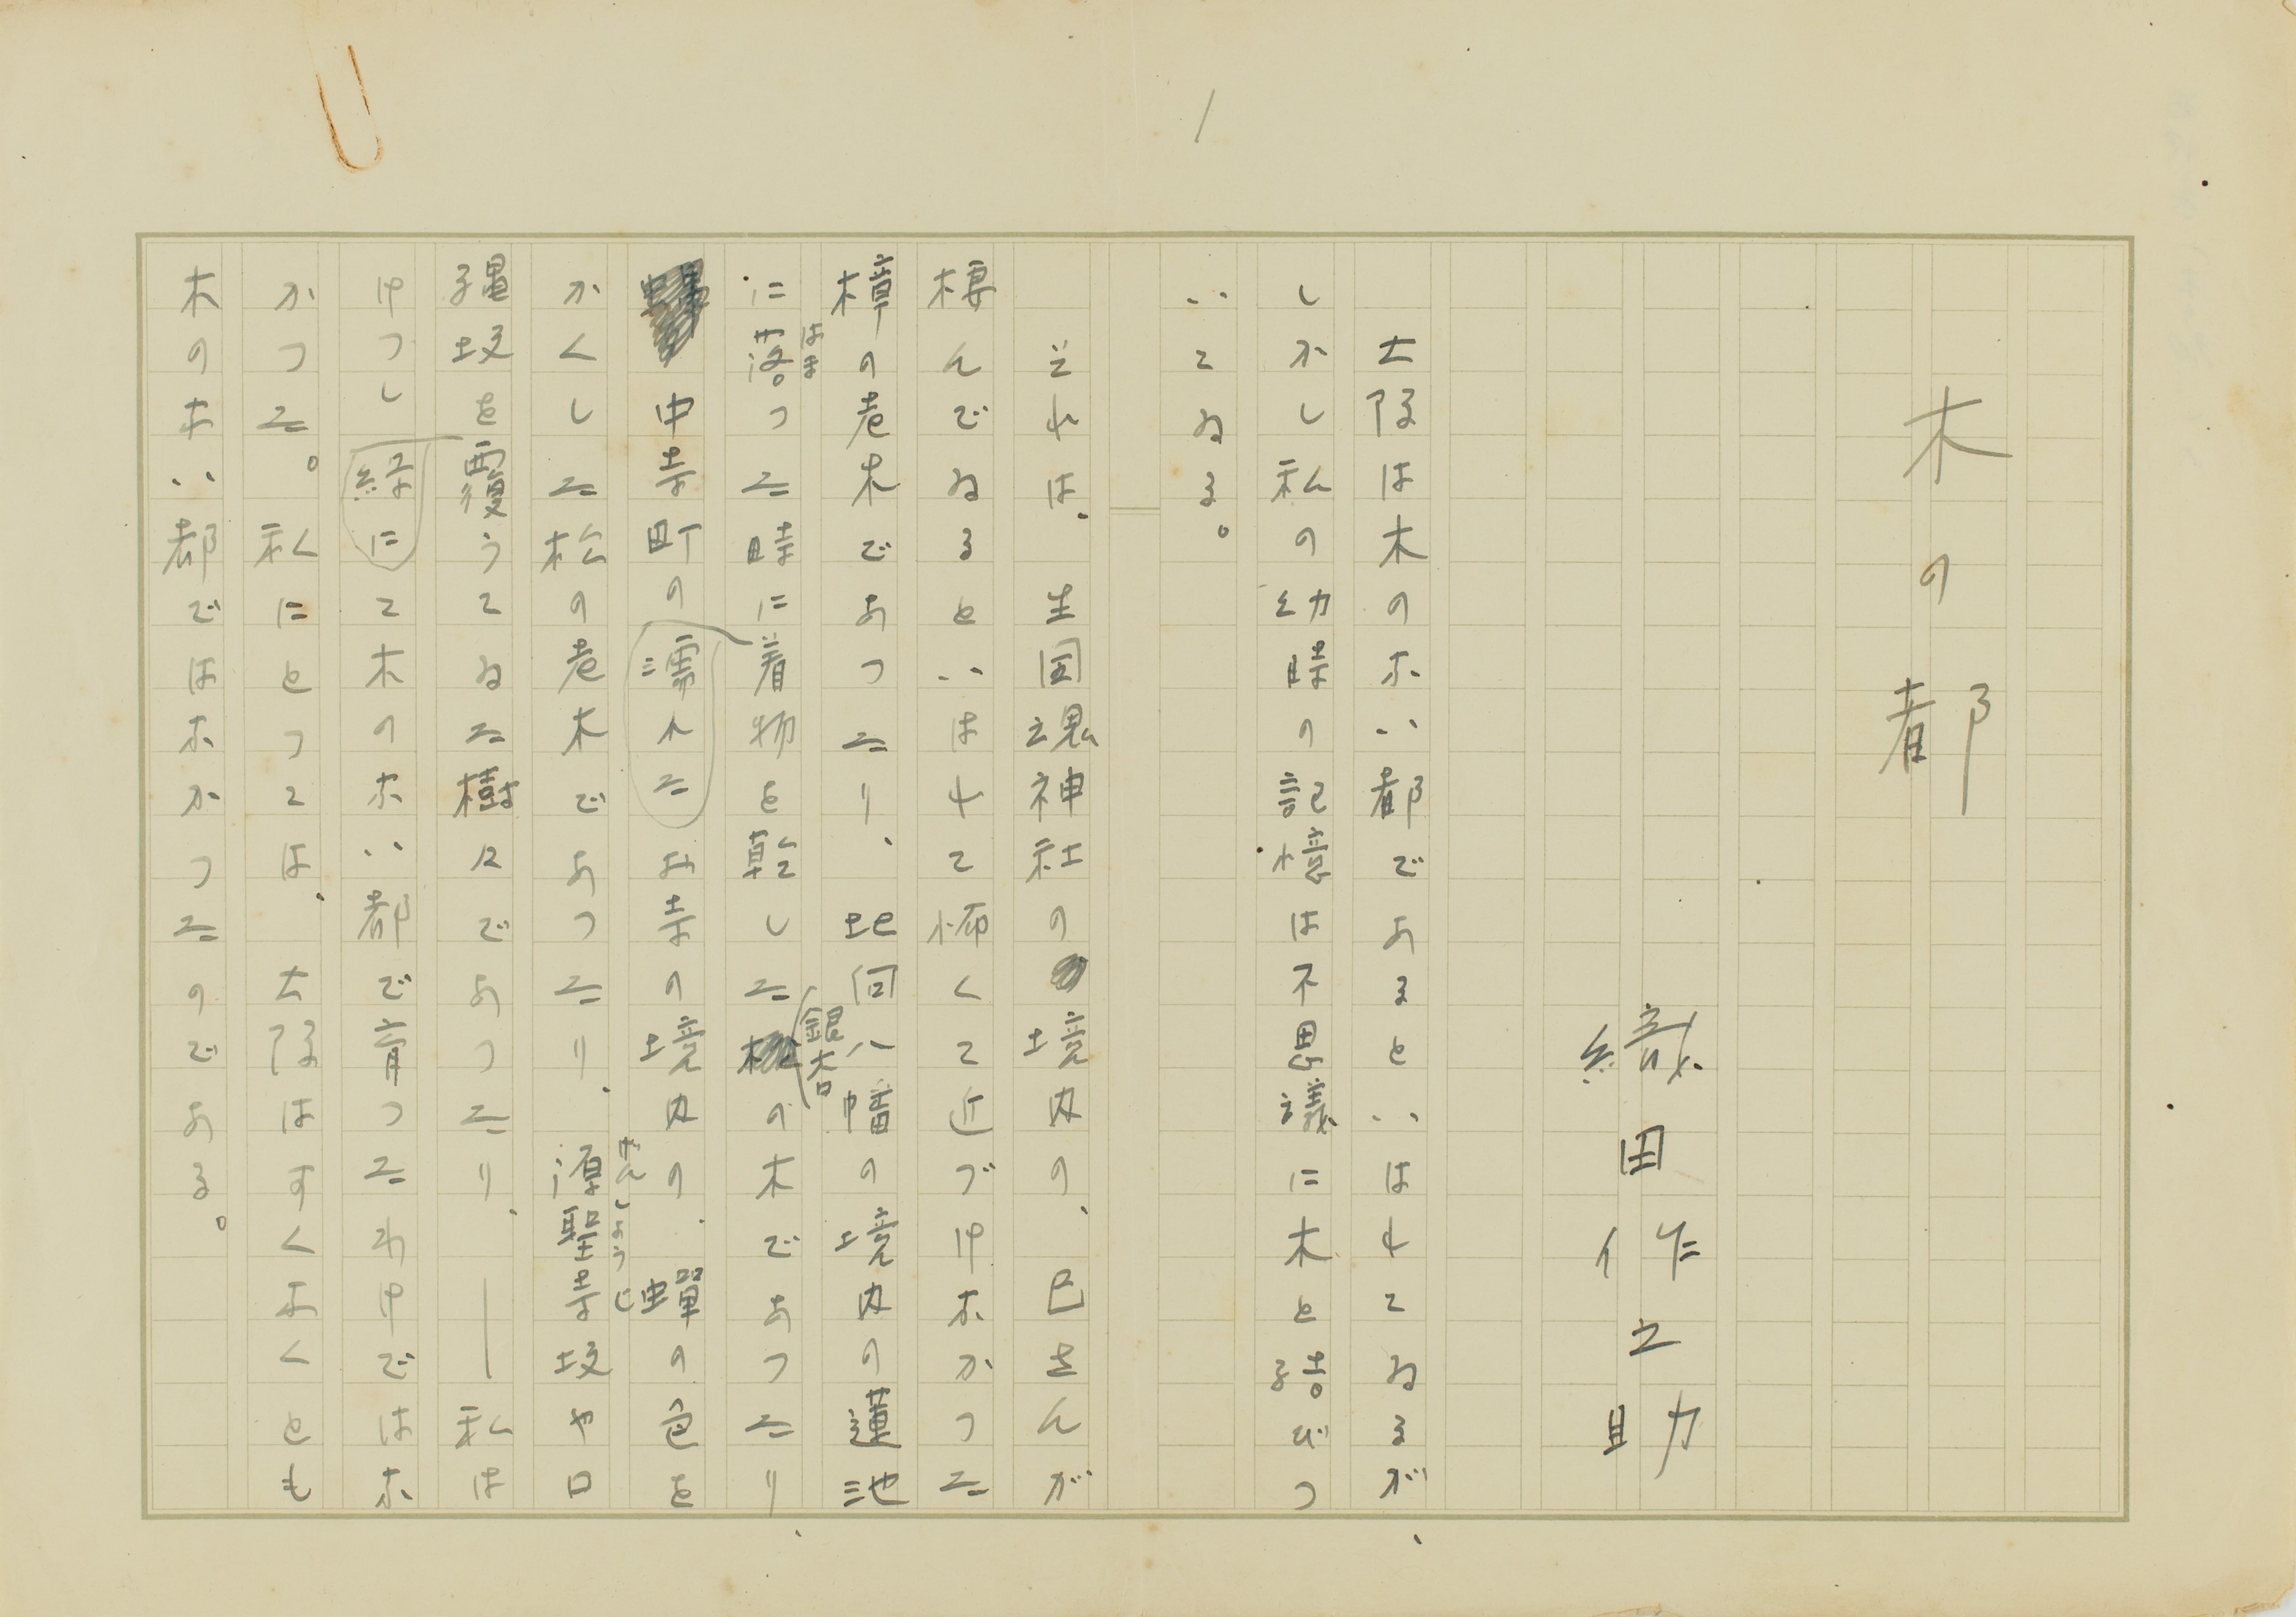 1
木の都
織田作之助
大阪は木のない都であるといはれてゐるが、
しかし私の幼時の記憶は不思議に木と結びつ
いてゐる。
それは、生国魂神社の境内の、巳さんが
棲んでゐるといはれて怖くて近づけなかつた
樟の老木であつたり、北向八幡の境内の蓮池
はま
に落つた時に着物を乾した銀杏の木であつたり、
中寺町の濡れたお寺の境内の、蝉の色を
げんしようじ
かくした松の老木であつたり、源聖寺坂や口
縄坂を覆うてゐた樹々であつたり、――私は
けつし緑にて木のない都で育つたわけではな
かつた。私にとつては、大阪はすくなくとも
木のない都ではなかつたのである。